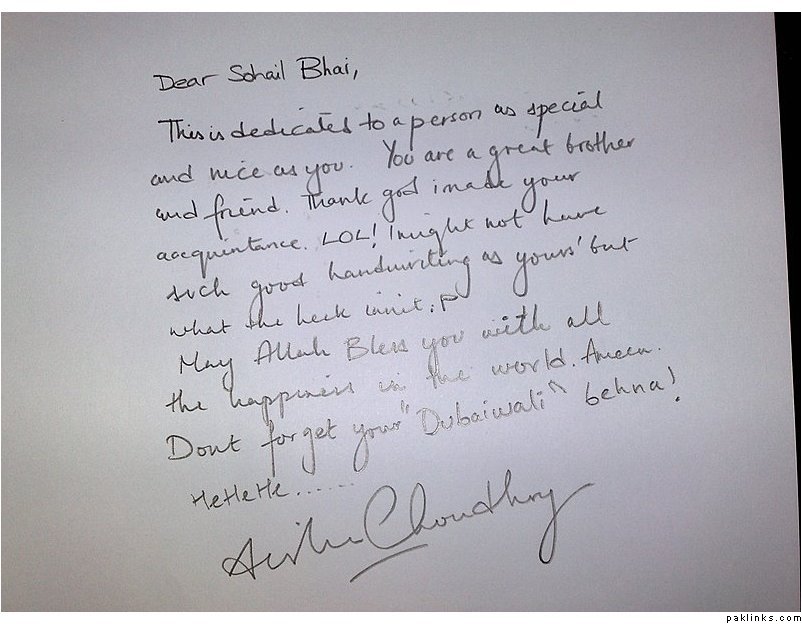 Dear Sohail Bhai,
This is dedicated to a person as special
and nice as you. You are a great brother
and friend. Thank god i made your
accquintance. LOL! I might not have
such good handwriting as yours' but
what the heck innit :P
May Allah Bless you with all
the happiness in the world. Ameen.
Dont forget your "Dubaiwali" behna!
HeHeHe......
Choudhry
paklinks.com